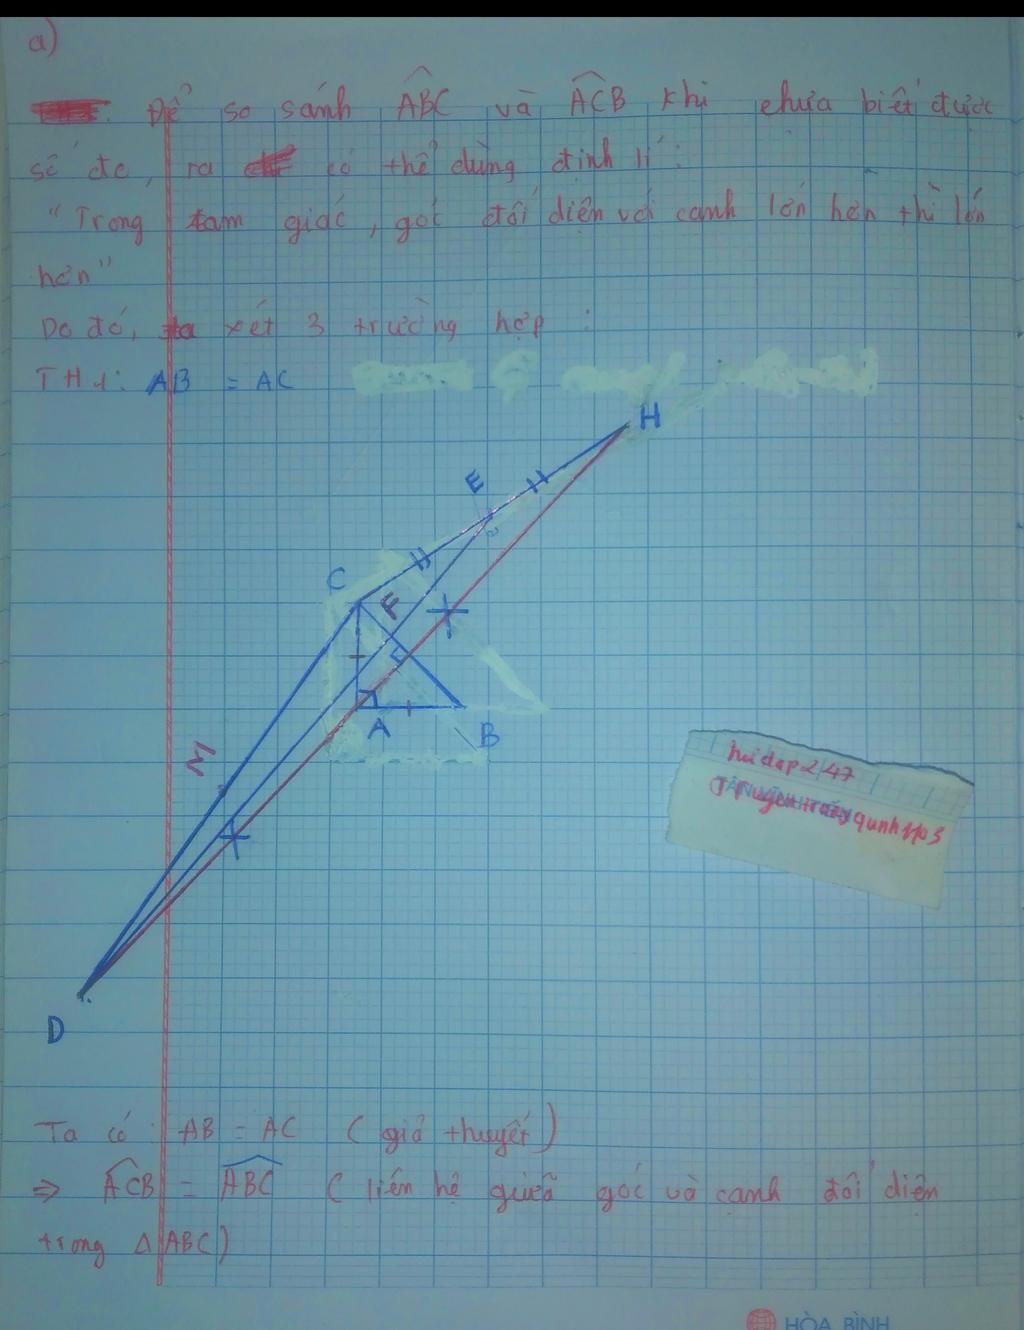 a)
Để so sánh ABC và ACB khi chưa biết được
số đo, ra có thể dùng định lí:
"Trong tam giác, góc đối diện với cạnh lớn hơn thì lớn
hơn"
Do đó, ta xét 3 trường hợp :
TH1: AB = AC
H
E
C
F
A
B
M
D
hoidap247
quynh1103
Ta có : AB = AC (giả thuyết)
⇒ ACB = ABC (liên hệ giữa góc và cạnh đối diện
trong Δ ABC)
HÒA BÌNH